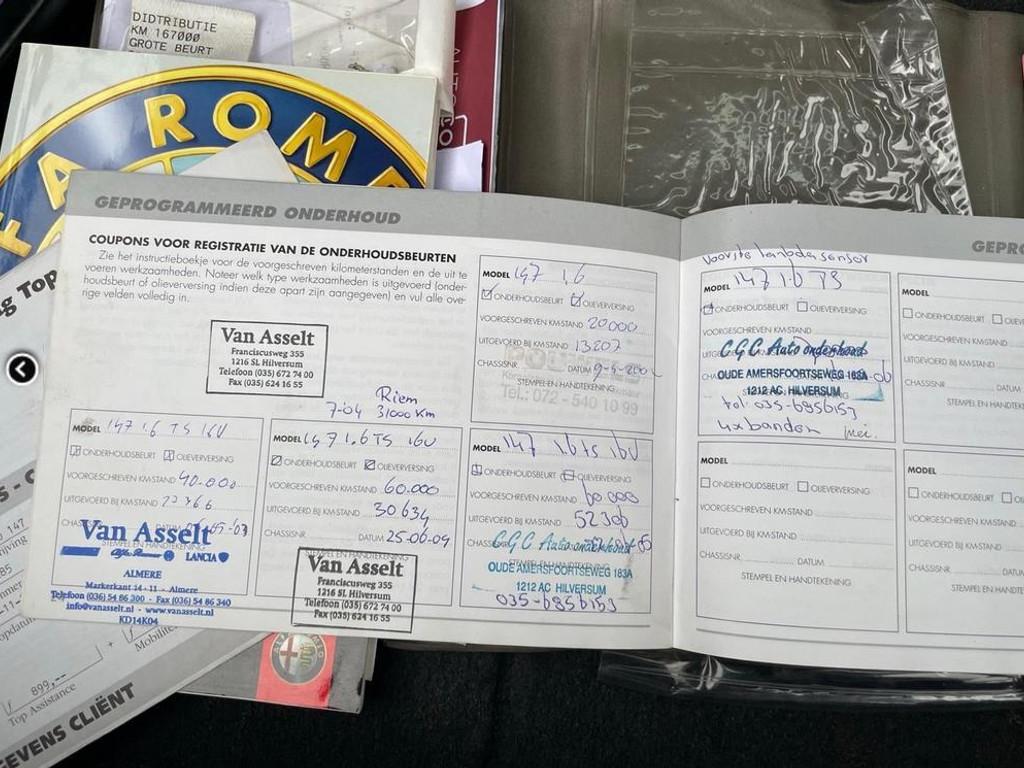 DIDTRIBUTIE
KM 167000
GROTE BEURT
FA ROME
GEPROGRAMMEERD ONDERHOUD
COUPONS VOOR REGISTRATIE VAN DE ONDERHOUDSBEURTEN
Zie het instructieboekje voor de voorgeschreven kilometerstanden en de uit te
voeren werkzaamheden. Noteer welk type werkzaamheden is uitgevoerd (onder-
houdsbeurt of olieverversing indien deze apart zijn aangegeven) en vul alle ove-
rige velden volledig in.
Van Asselt
Franciscusweg 355
1216 SL Hilversum
Telefoon (035) 672 74 00
Fax (035) 624 16 55
Riem
7-04 31000 Km
MODEL 147 1.6
ONDERHOUDSBEURT OLIEVERVERSING
VOORGESCHREVEN KM-STAND 20000
UITGEVOERD BIJ KM-STAND 13207
CHASSISNR. DATUM
STEMPEL EN HANDTEKENING
Tel.: 072 - 540 10 99
MODEL 147 1.6 TS 16V
ONDERHOUDSBEURT OLIEVERVERSING
VOORGESCHREVEN KM-STAND 40.000
UITGEVOERD BIJ KM-STAND
Van Asselt
STEMPEL EN HANDTEKENING
Alfa Romeo LANCIA
ALMERE
Markerkant 14 - 11 - Almere
Telefoon (036) 54 86 300 - Fax (036) 54 86 340
info@vanasselt.nl - www.vanasselt.nl
KD14K04
MODEL 147 1.6 TS 16V
ONDERHOUDSBEURT OLIEVERVERSING
VOORGESCHREVEN KM-STAND 60.000
UITGEVOERD BIJ KM-STAND 30634
CHASSISNR. DATUM 25-06-04
STEMPEL EN HANDTEKENING
Van Asselt
Franciscusweg 355
1216 SL Hilversum
Telefoon (035) 672 74 00
Fax (035) 624 16 55
MODEL 147 1.6 TS 16V
ONDERHOUDSBEURT OLIEVERVERSING
VOORGESCHREVEN KM-STAND 60 000
UITGEVOERD BIJ KM-STAND 52306
CGC Auto onderhoud
OUDE AMERSFOORTSEWEG 183A
1212 AC HILVERSUM
035-6856153
GEPRO
Voorste lambda sensor
MODEL 147 1.6 TS
ONDERHOUDSBEURT OLIEVERVERSING
VOORGESCHREVEN KM-STAND
CGC Auto onderhoud
OUDE AMERSFOORTSEWEG 183A
1212 AC HILVERSUM
tel: 035-6856153
4x banden mei.
MODEL
ONDERHOUDSBEURT
VOORGESCHREVEN KM-STAND
UITGEVOERD BIJ KM-STAND
CHASSISNR. DATUM
STEMPEL EN HANDTEKE
MODEL
ONDERHOUDSBEURT OLIEVERVERSING
VOORGESCHREVEN KM-STAND
UITGEVOERD BIJ KM-STAND
CHASSISNR. DATUM
STEMPEL EN HANDTEKENING
MODEL
ONDERHOUDSBEURT
VOORGESCHREVEN KM-STAND
UITGEVOERD BIJ KM-STAND
CHASSISNR. DATUM
STEMPEL EN HANDTE
g Top
147
899,--
Top Assistance
Mobilite
EVENS CLIËNT